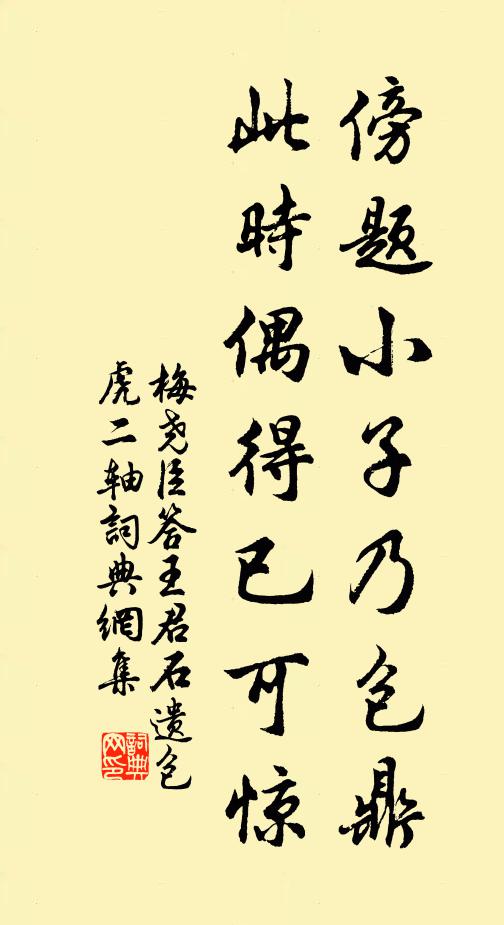 傍题小子乃包鼎
此時偶得已可惊
梅尧臣答王君石遗包
虎二轴詞典網集
詞典网印